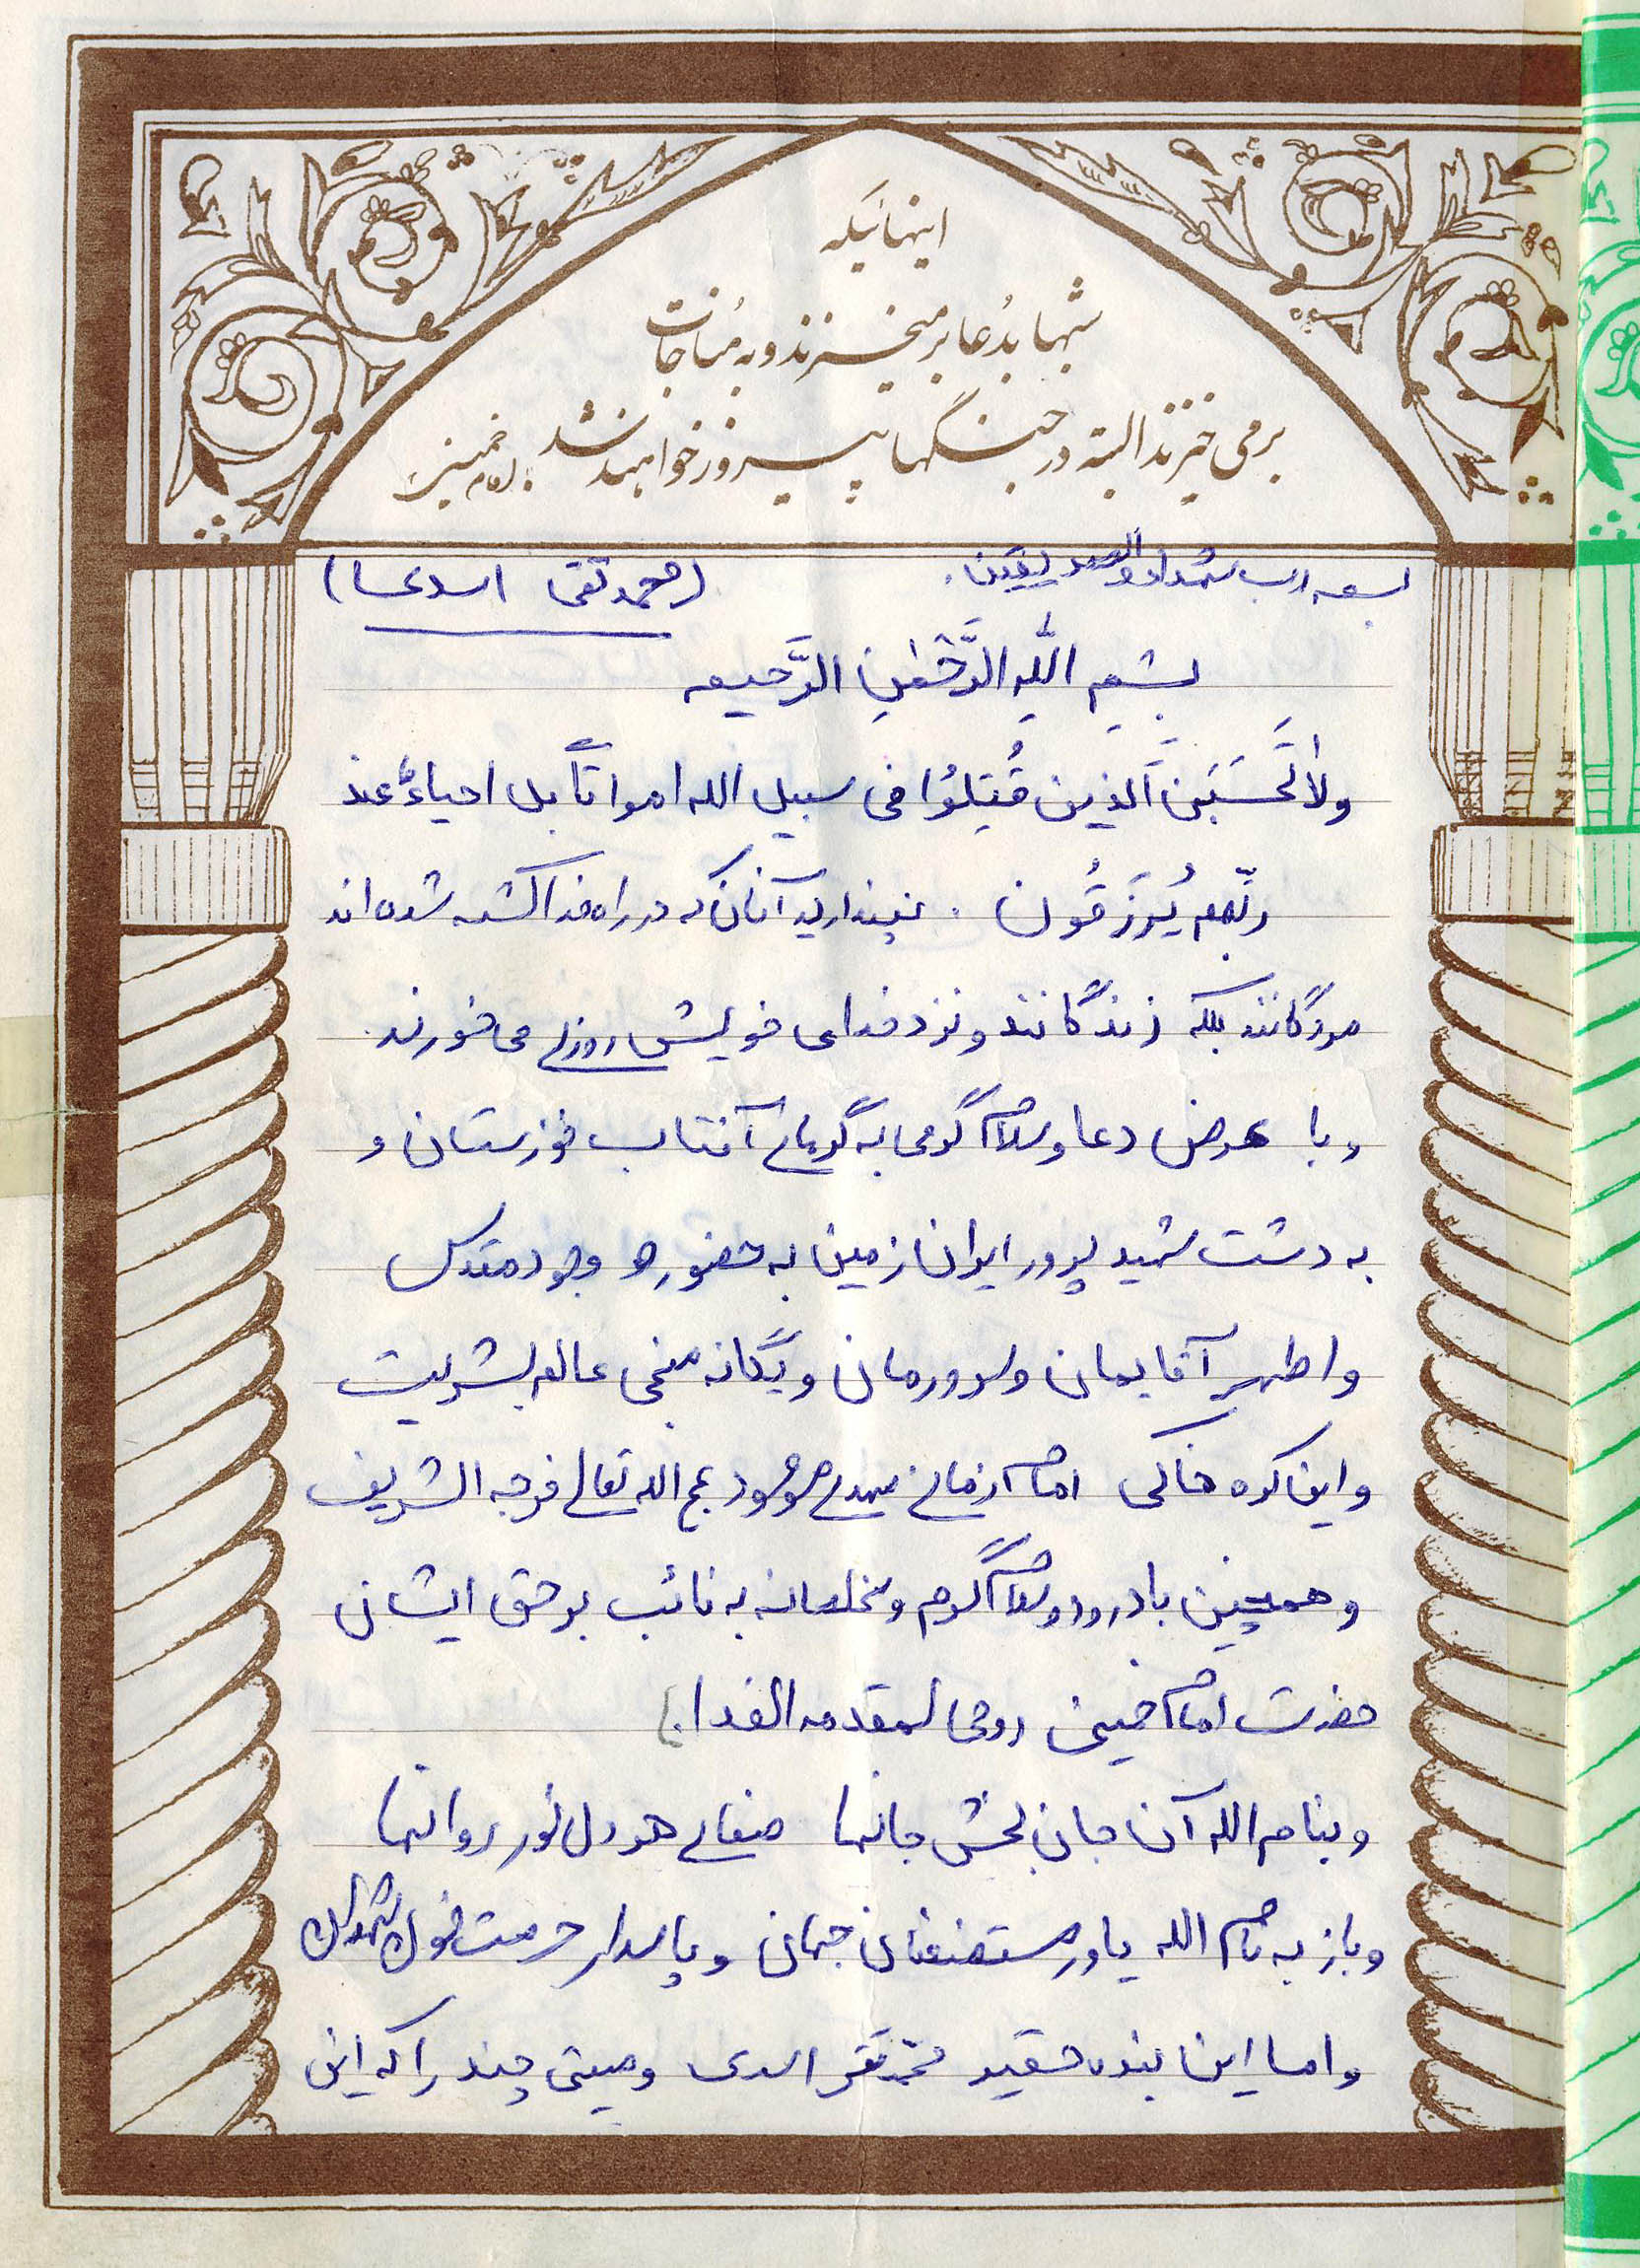 اینهائیکه
شبها بدُعا برمیخیزند و به مُناجات
برمی خیزند البته در جبنگها پیروز خواهند شد. امام خمینی
بسم رب الشهداء والصدیقین. (محمد تقی اسدی)
بِسْمِ اللهِ الرَّحْمٰنِ الرَّحیم
ولاٰ تَحْسَبَنَ اَلذین قُتِلوُا فی سبیل الله امواتاً بل احیاءٌ عند
ربّهم یُرزَقُون . نپندارید آنان که در راه خدا کشته شده اند
مردگانند بلکه زندگانند و نزد خدای خویش روزی می خورند.
و با عرض دعا و سلام گرمی به گرمای آفتاب خوزستان و
به دشت شهید پرور ایران زمین به حضور وجود مقدس
و اطهر آقایمان و سرورمان و یگانه منجی عالم بشریت
و این کره خاکی امام زمان مهدی موعود عج الله تعالی فرجه الشریف
و همچنین با درود و سلام گرم و مخلصانه به نائب بر حق ایشان
حضرت امام خمینی روحی لمقدمه الفدا.
و بنام الله آن جان بخش جانها صفای هر دل نور روانها
و باز به نام الله یاور مستضعفان جهان و پاسدار حرمت خون شهیدان
و اما این بنده حقیر محمد تقی اسدی وصیتی چند را که این